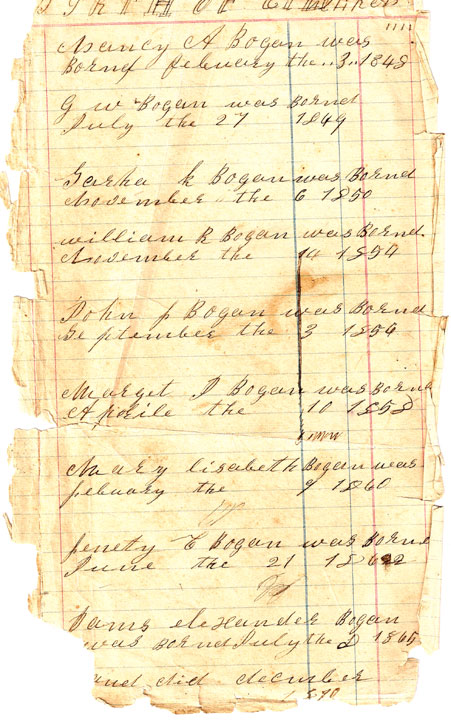 Nancy A Bogan was
Bornd febuary the..3..1848
G W Bogan was Bornd
July the 27 1849
Sarha k Bogan was Bornd
November the 6 1850
william R Bogan was Bornd
November the 14 1854
John p Bogan was Bornd
Se ptember the 3 1854
Marget J Bogan was Bornd
Apriile the 10 1858
Mary lisabeth Bogan was
febuary the 9 1860
June the 21
Jams elexander Bogan
was Bornd July the 2 1865
and did december
1870